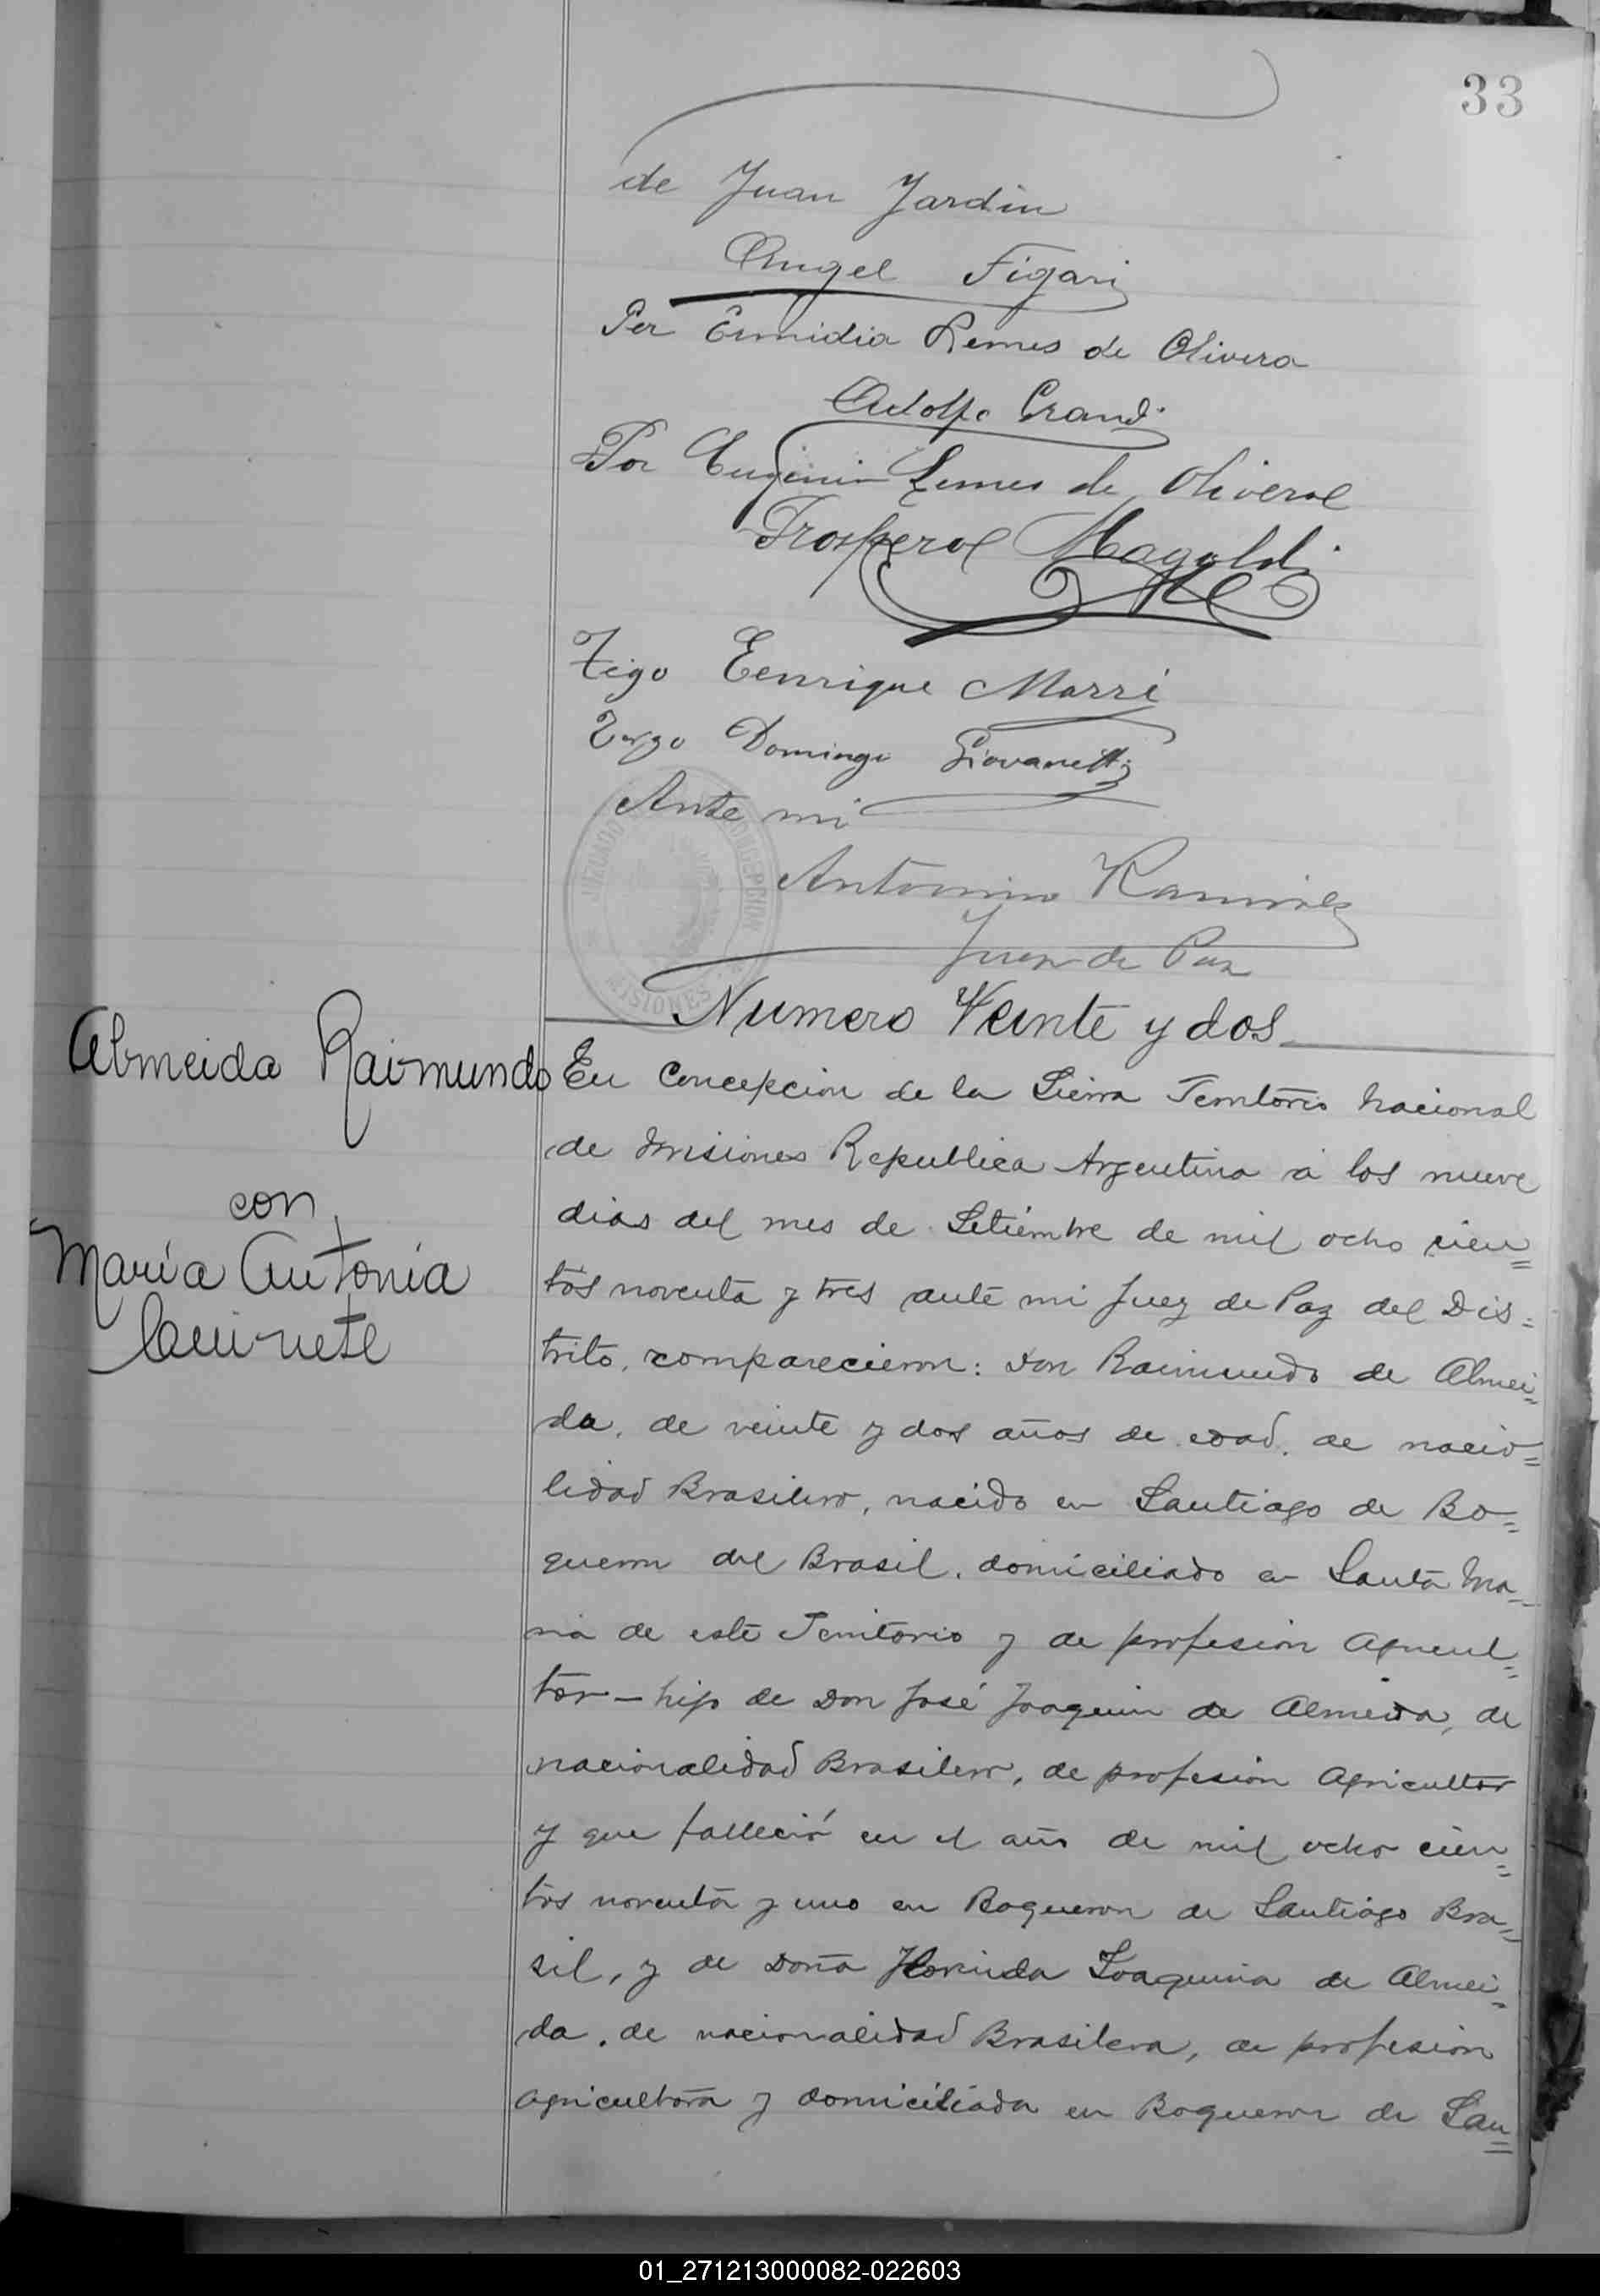 33
de Juan Jardin
Angel Figari
Por Ermidia Lemes de Olivera
Adolfo Grandi
Por Eugenio Lemes de Olivera
Prospero Magaldi
Tigo Eenrique Marri
Tgo Domingo Giovanetti
Ante mi
JUZGADO CONCEPCION
MISIONES
Antonino Ramirez
Juez de Paz
Numero Veinte y dos
Almeida Raimundo
con
María Antonia
En Concepcion de la Sierra Territorio Nacional
de Misiones Republica Argentina á los nueve
dias del mes de Setiembre de mil ocho cien=
tos noventa y tres ante mi Juez de Paz del Dis=
trito, comparecieron: Don Raimundo de Almei=
da, de veinte y dos años de edad, de nacio=
lidad Brasilero, nacido en Santiago de Bo=
queron del Brasil, domiciliado en Santa Ma=
ria de este Territorio y de profesion Agricul=
tor – hijo de Don José Joaquin de Almeida, de
nacionalidad Brasilero, de profesion Agricultor
y que falleció en el año de mil ocho cien=
tos noventa y uno en Boqueron de Santiago Bra=
sil, y de Doña Joaquina de Almei=
da, de nacionalidad Brasilera, de profesion
agricultora y domiciliada en Boqueron de San=
01_271213000082-022603